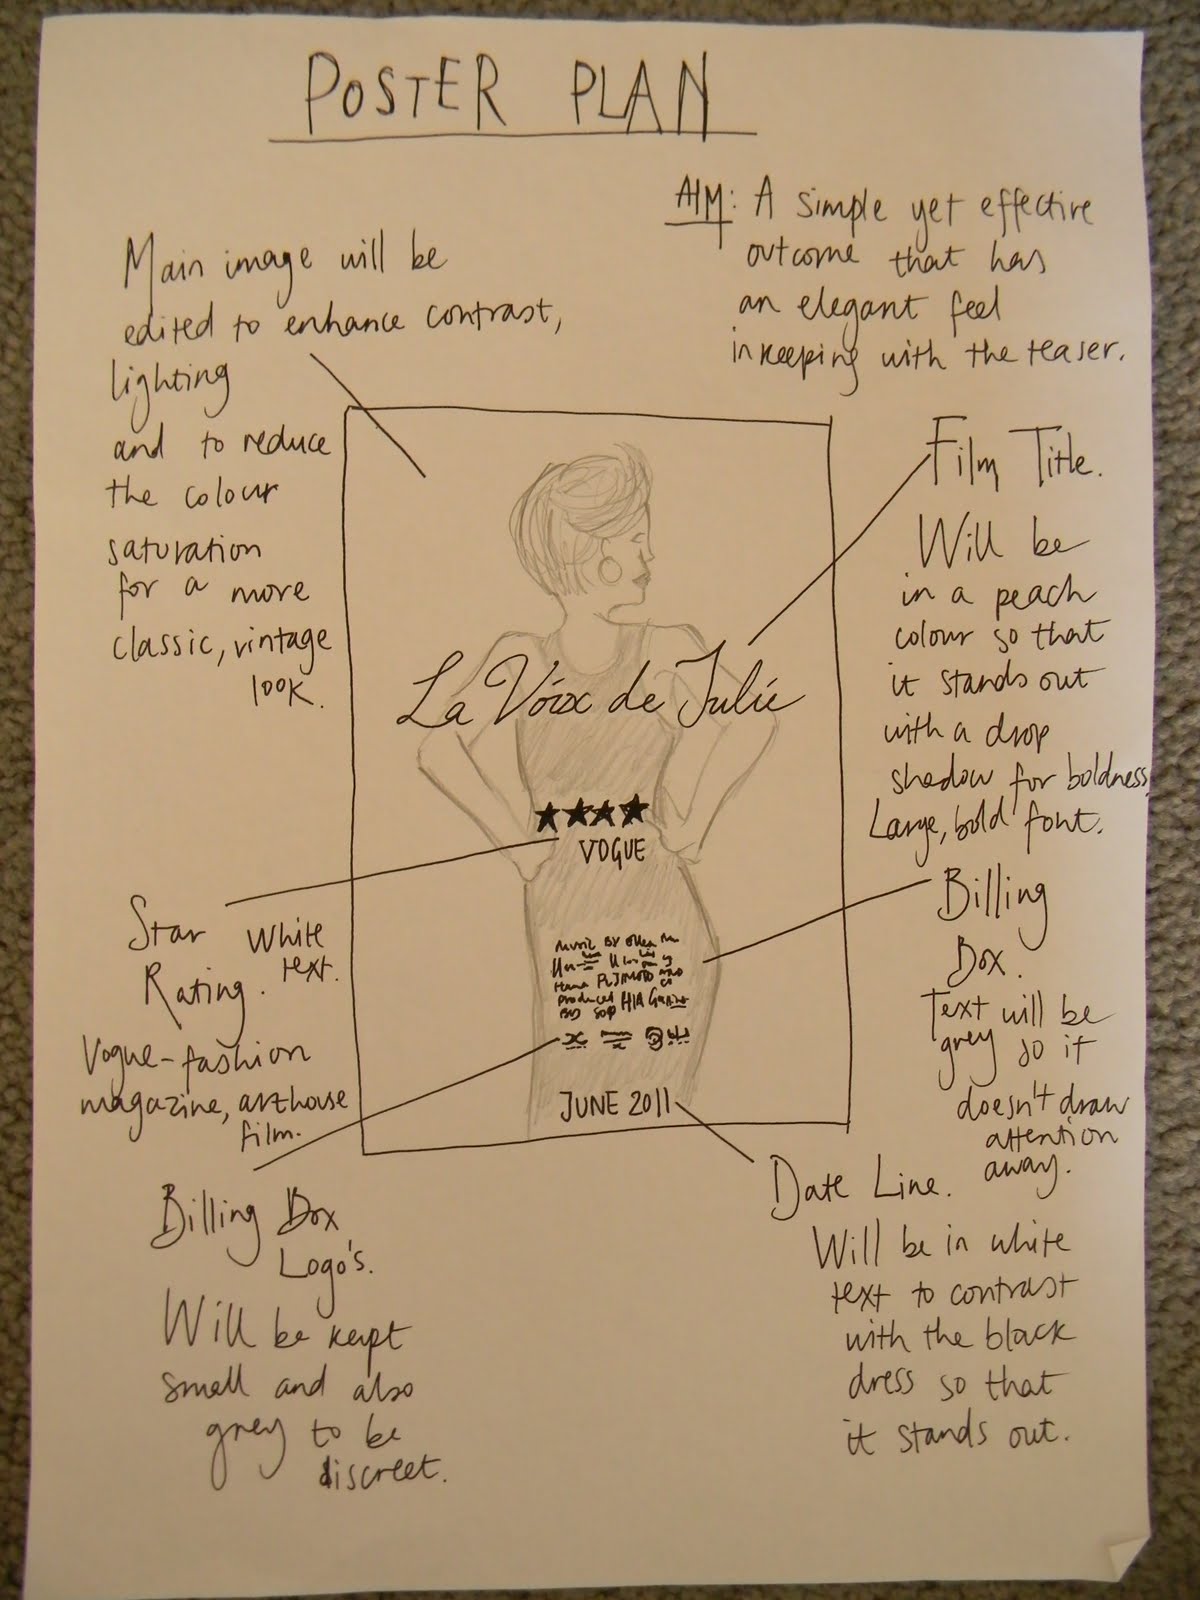 POSTER PLAN
AIM: A simple yet effective
outcome that has
an elegant feel
inkeeping with the teaser.
Main image will be
edited to enhance contrast,
lighting
and to reduce
the colour
saturation
for a more
classic, vintage
look.
Film Title.
Will be
in a peach
colour so that
it stands out
with a drop
shadow for boldness.
Large, bold font.
La Voix de Julie
★★★★
VOGUE
Star
Rating.
White
text.
Vogue-fashion
magazine, arthouse
film.
Billing
Box.
Text will be
grey so it
doesn't draw
attention
away.
Music By
Produced
By
JUNE 2011
Billing Box
Logo's.
Will be kept
small and also
grey to be
discreet.
Date Line.
Will be in white
text to contrast
with the black
dress so that
it stands out.